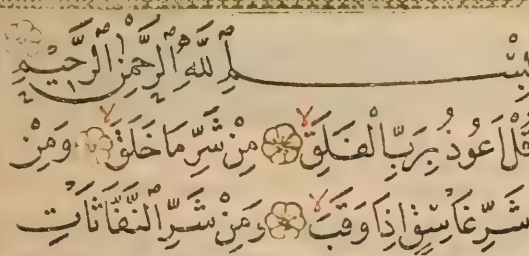 بِسْمِ اللَّهِ الرَّحْمَنِ الرَّحِيمِ
قُلْ أَعُوذُ بِرَبِّ الْفَلَقِ مِنْ شَرِّ مَا خَلَقَ وَمِنْ
شَرِّ غَاسِقٍ إِذَا وَقَبَ وَمِنْ شَرِّ النَّفَّاثَاتِ